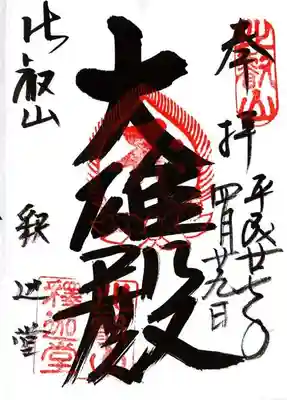 奉拝
平成廿七年
四月廿九日
大雄殿
比叡山
釈迦堂
比叡山
釋迦堂